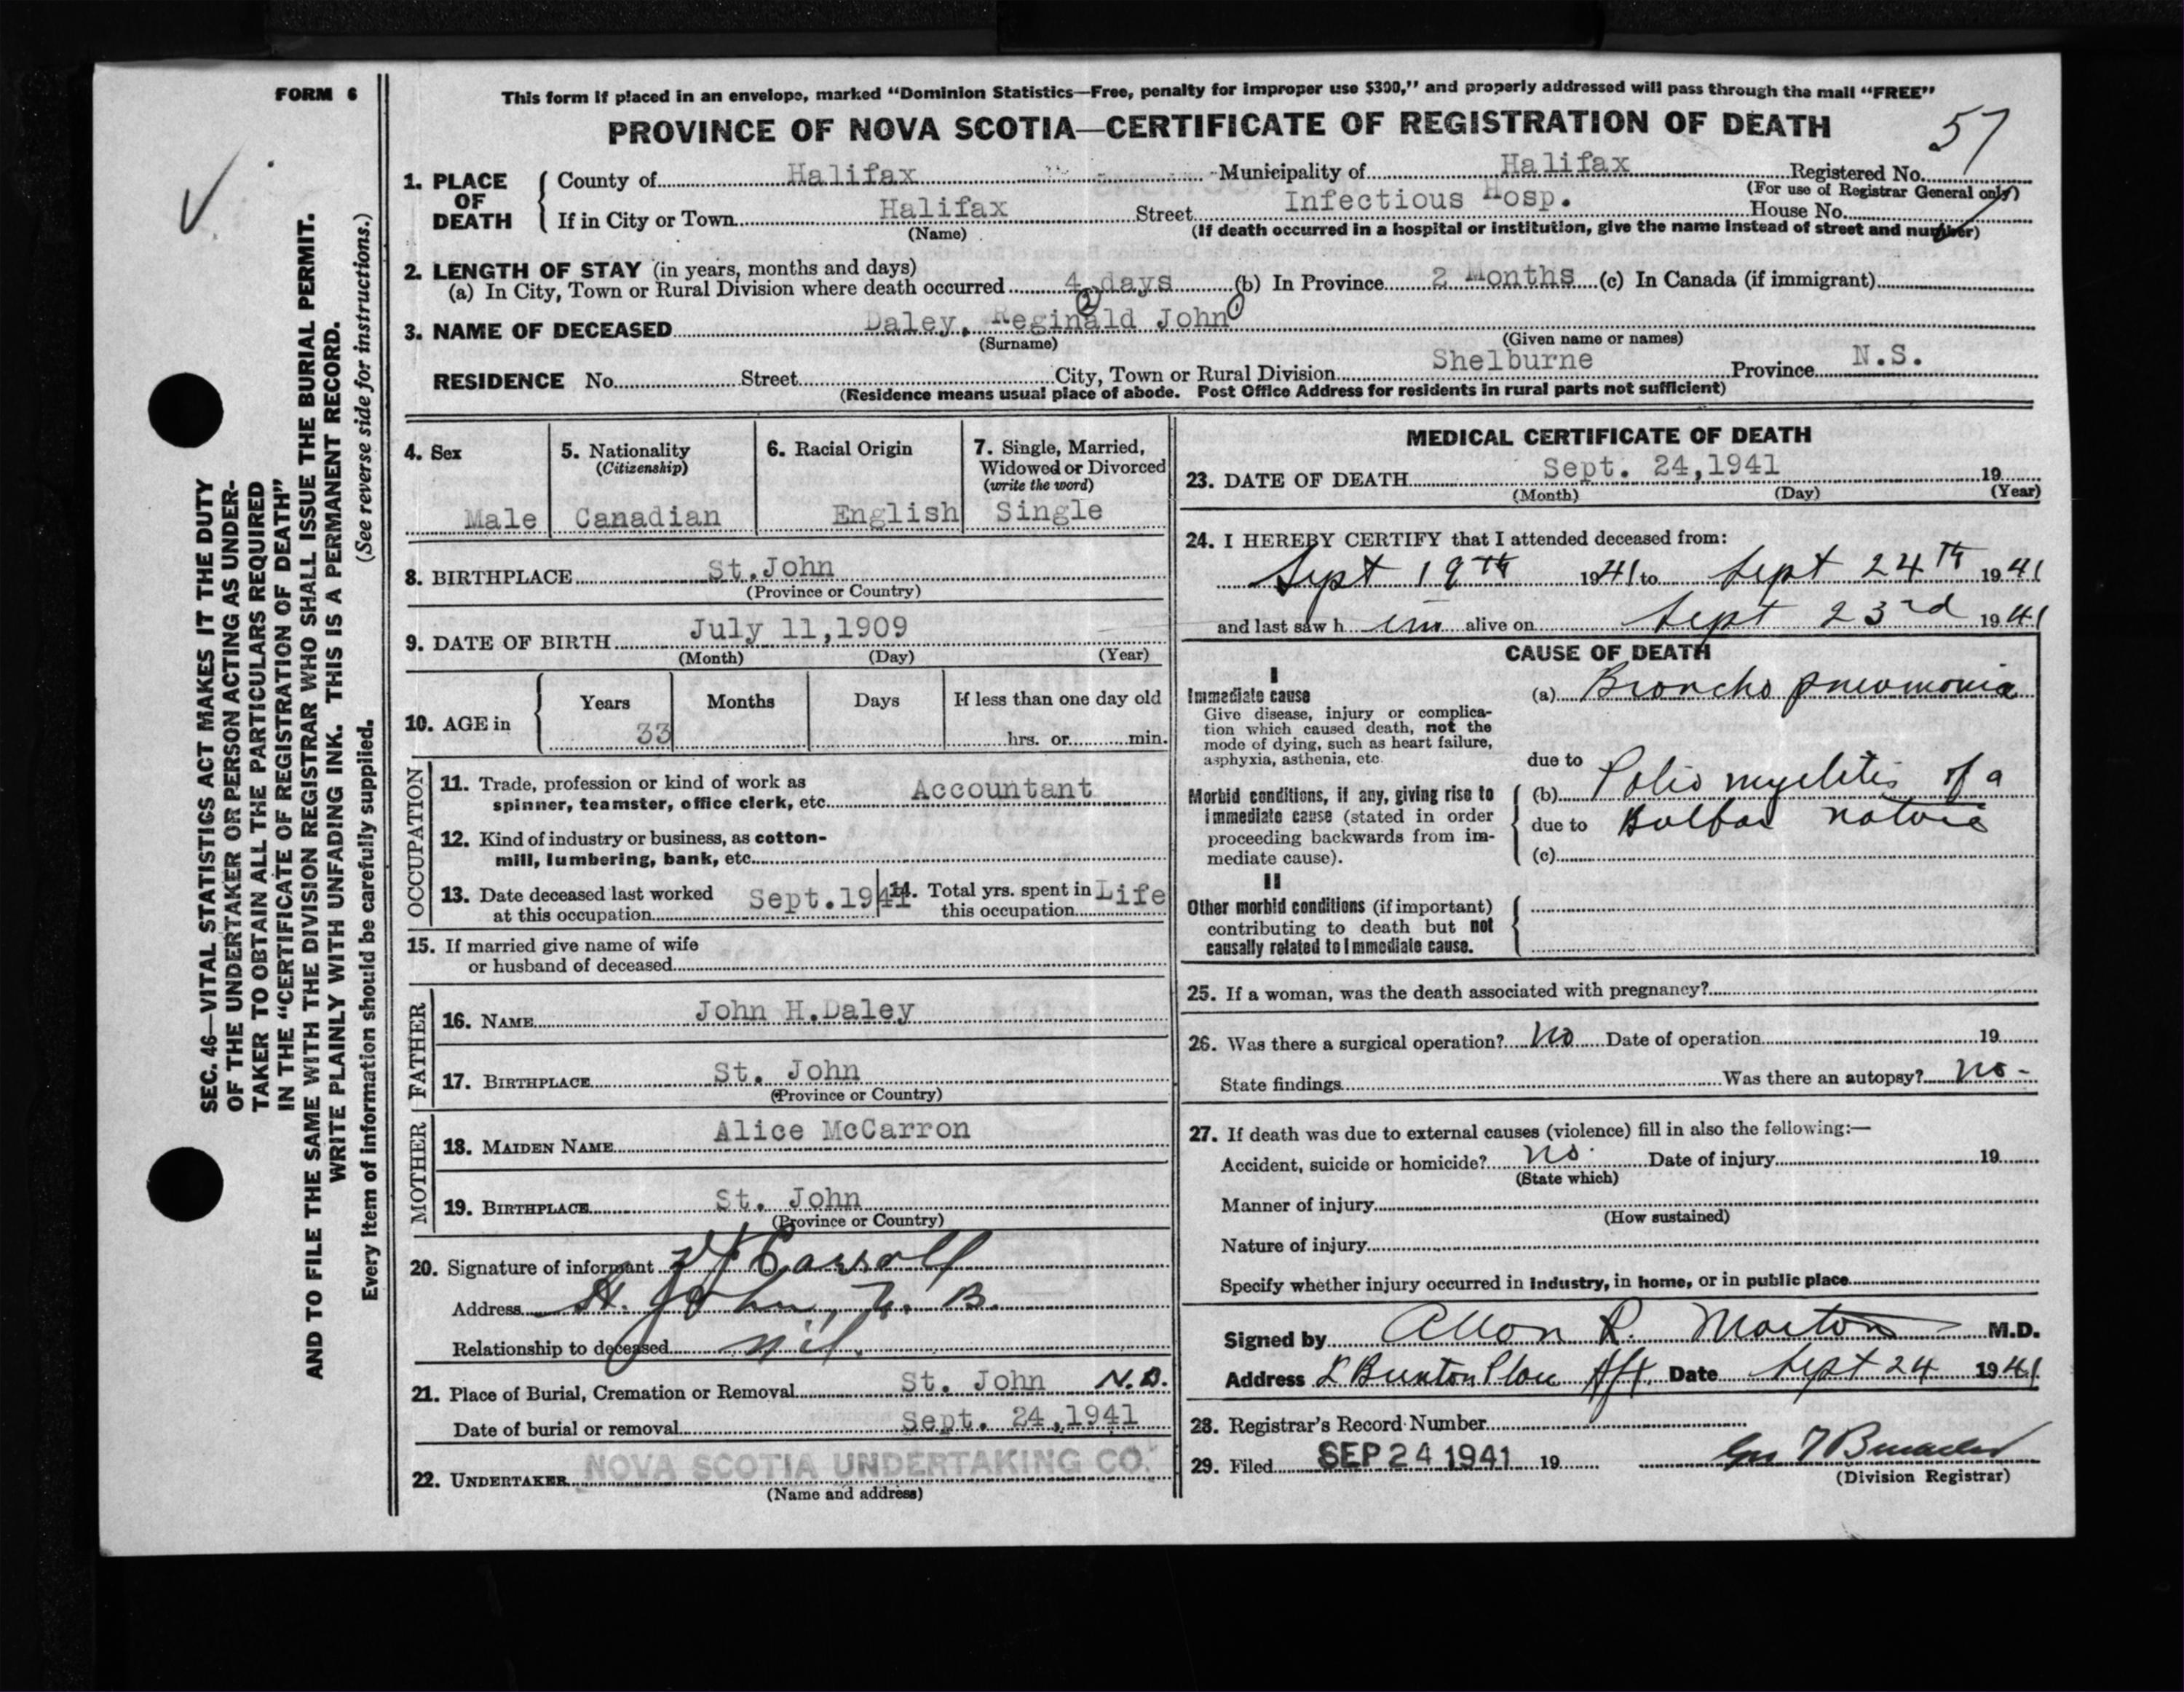 FORM 6
This form if placed in an envelope, marked "Dominion Statistics—Free, penalty for improper use $300," and properly addressed will pass through the mail "FREE"
PROVINCE OF NOVA SCOTIA—CERTIFICATE OF REGISTRATION OF DEATH
57
SEC. 46—VITAL STATISTICS ACT MAKES IT THE DUTY
OF THE UNDERTAKER OR PERSON ACTING AS UNDER-
TAKER TO OBTAIN ALL THE PARTICULARS REQUIRED
IN THE "CERTIFICATE OF REGISTRATION OF DEATH"
AND TO FILE THE SAME WITH THE DIVISION REGISTRAR WHO SHALL ISSUE THE BURIAL PERMIT.
WRITE PLAINLY WITH UNFADING INK. THIS IS A PERMANENT RECORD.
Every item of information should be carefully supplied. (See reverse side for instructions.)
1. PLACE OF DEATH
County of Halifax Municipality of Halifax Registered No.
(For use of Registrar General only)
If in City or Town Halifax Street Infectious Hosp. House No.
(Name) (If death occurred in a hospital or institution, give the name instead of street and number)
2. LENGTH OF STAY (in years, months and days)
(a) In City, Town or Rural Division where death occurred 4 days (b) In Province 2 Months (c) In Canada (if immigrant)
2 1
3. NAME OF DECEASED Daley, Reginald John
(Surname) (Given name or names)
RESIDENCE No. Street City, Town or Rural Division Shelburne Province N.S.
(Residence means usual place of abode. Post Office Address for residents in rural parts not sufficient)
4. Sex
Male
5. Nationality
(Citizenship)
Canadian
6. Racial Origin
English
7. Single, Married,
Widowed or Divorced
(write the word)
Single
8. BIRTHPLACE St.John
(Province or Country)
9. DATE OF BIRTH July 11,1909
(Month) (Day) (Year)
10. AGE in
Years Months Days If less than one day old
33 hrs. or min.
OCCUPATION
11. Trade, profession or kind of work as
spinner, teamster, office clerk, etc. Accountant
12. Kind of industry or business, as cotton-
mill, lumbering, bank, etc.
13. Date deceased last worked
at this occupation Sept.1941
14. Total yrs. spent in
this occupation Life
15. If married give name of wife
or husband of deceased
FATHER
16. NAME John H.Daley
17. BIRTHPLACE St. John
(Province or Country)
MOTHER
18. MAIDEN NAME Alice McCarron
19. BIRTHPLACE St. John
(Province or Country)
20. Signature of informant Carroll
Address St. John, N. B.
Relationship to deceased nil.
21. Place of Burial, Cremation or Removal St. John N.B.
Date of burial or removal Sept. 24,1941
22. UNDERTAKER NOVA SCOTIA UNDERTAKING CO.
(Name and address)
MEDICAL CERTIFICATE OF DEATH
23. DATE OF DEATH Sept. 24,1941 19
(Month) (Day) (Year)
24. I HEREBY CERTIFY that I attended deceased from:
Sept 19th 1941 to Sept 24th 1941
and last saw h im alive on Sept 23rd 1941
CAUSE OF DEATH
I
Immediate cause
Give disease, injury or complica-
tion which caused death, not the
mode of dying, such as heart failure,
asphyxia, asthenia, etc.
(a) Broncho pneumonia
due to
Morbid conditions, if any, giving rise to
immediate cause (stated in order
proceeding backwards from im-
mediate cause).
(b) Polio myelitis of a
due to Bulbar nature
(c)
II
Other morbid conditions (if important)
contributing to death but not
causally related to immediate cause.
25. If a woman, was the death associated with pregnancy?
26. Was there a surgical operation? No Date of operation 19
State findings Was there an autopsy? no -
27. If death was due to external causes (violence) fill in also the following:—
Accident, suicide or homicide? no. Date of injury 19
(State which)
Manner of injury
(How sustained)
Nature of injury
Specify whether injury occurred in industry, in home, or in public place
Signed by Allan R. Morton M.D.
Address Hfx. Date Sept 24 1941
28. Registrar's Record Number
29. Filed SEP 24 1941 19
(Division Registrar)